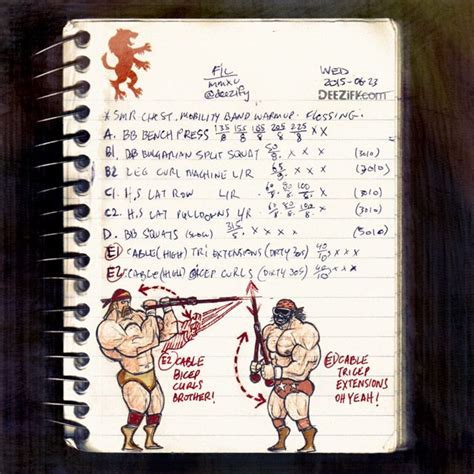 F/L
mmxv
@deezify
WED
2015-06-23
DEEZiFY.com
* SMR CHEST. MOBILITY BAND WARMUP. FLOSSING.
A. BB BENCH PRESS 135/8 155/8 185/8 205/8 225/8 x x
B1. DB BULGARIAN SPLIT SQUAT 50/8. x x x (3010)
B2 LEG CURL MACHINE L/R 60/8. x x x (3010)
C1. H.S LAT ROW L/R 60/8. 80/8. 100/8. x
C2. H.S LAT PULLDOWNS L/R 60/8. 80/8 100/8. x (3010)
D. BB SQUATS (SLOW) 315/8. x x x (5010)
E1 CABLE (HIGH) TRI EXTENSIONS (DIRTY 30s) 40/10 x x x
E2 CABLE (HIGH) BICEP CURLS (DIRTY 30s) 40/10 x x x
E2 CABLE
BICEP
CURLS
BROTHER!
E1 CABLE
TRICEP
EXTENSIONS
OH YEAH!